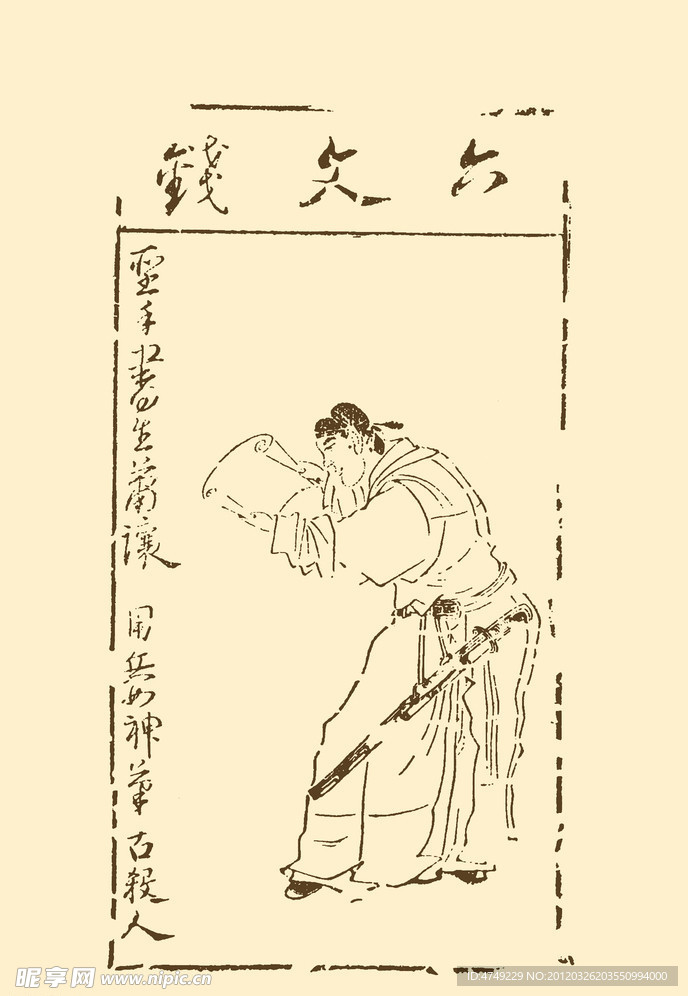 六文錢
聖手書生蕭讓 用兵如神筆舌殺人
昵享网 www.nipic.cn
ID:4749229 NO:20120326203550994000